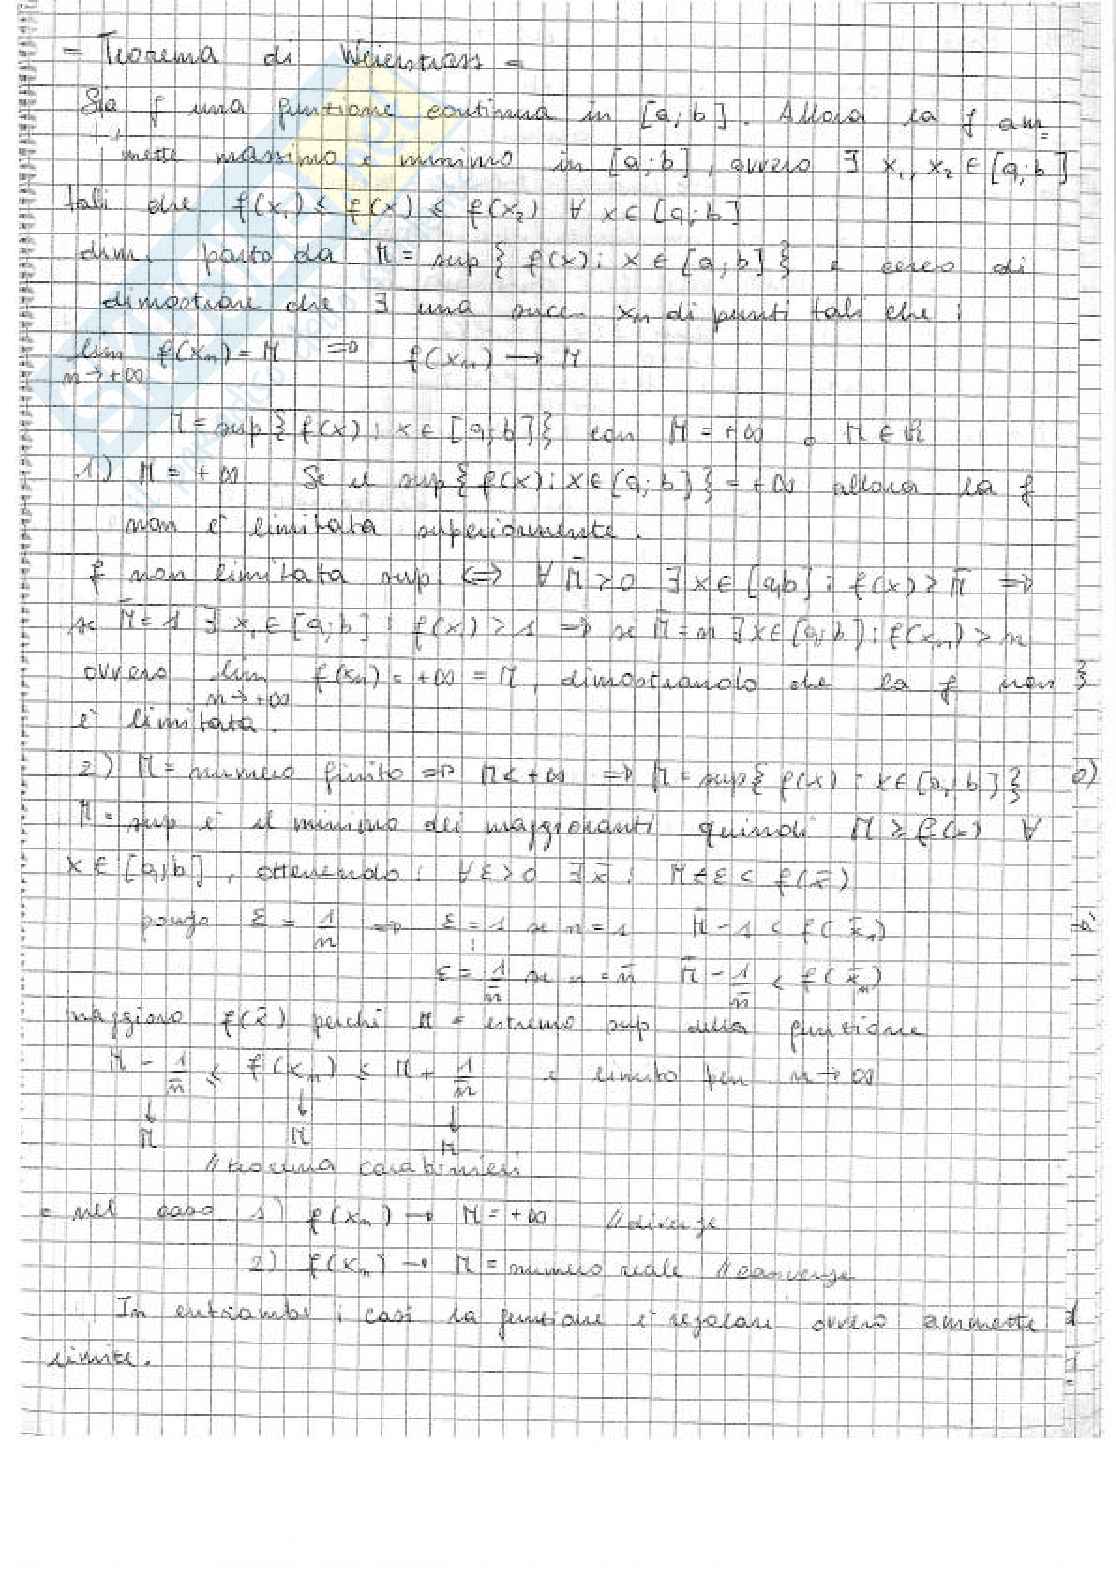 = Teorema di Weierstrass =
Sia f una funzione continua in [a;b]. Allora la f am=
mette massimo e minimo in [a;b], ovvero ∃ x₁, x₂ ∈ [a;b]
tali che f(x₁) ≤ f(x) ≤ f(x₂) ∀ x ∈ [a;b]
dim. posto da M = sup{ f(x) : x ∈ [a;b] } e cerco di
dimostrare che ∃ una succ. xₙ di punti tali che :
lim f(xₙ) = M => f(xₙ) → M
n→+∞
M = sup{ f(x) : x ∈ [a;b] } con M = +∞ o M ∈ ℝ
1) M = +∞ Se il sup{ f(x) : x ∈ [a;b] } = +∞ allora la f
non è limitata superiormente.
f non limitata sup. <=> ∀ M̄ > 0 ∃ x ∈ [a;b] : f(x) > M̄ =>
se M̄ = 1 ∃ x₁ ∈ [a;b] : f(x) > 1 => se M̄ = n ∃ x ∈ [a;b] : f(xₙ) > n
ovvero lim f(xₙ) = +∞ = M, dimostrando che la f non
n→+∞
è limitata.
2) M = numero finito => M < +∞ => M = sup{ f(x) : x ∈ [a;b] }
M = sup è il minimo dei maggioranti quindi M ≥ f(x) ∀
x ∈ [a;b], ottenendo : ∀ ε > 0 ∃ x̄ : M - ε < f(x̄)
pongo ε = 1/n => ε = 1 se n = 1 M̄ - 1 < f(x̄₁)
ε = 1/n̄ se n = n̄ M̄ - 1/n̄ < f(x̄ₙ)
maggioro f(x̄) perché M = estremo sup della funzione
M - 1/n̄ ≤ f(xₙ) ≤ M + 1/n̄ e limito per n→∞
↓ ↓ ↓
M M M
// teorema carabinieri
= nel caso 1) f(xₙ) → M = +∞ // diverge
2) f(xₙ) → M = numero reale // converge
In entrambi i casi la funzione è regolare ovvero ammette
limite.